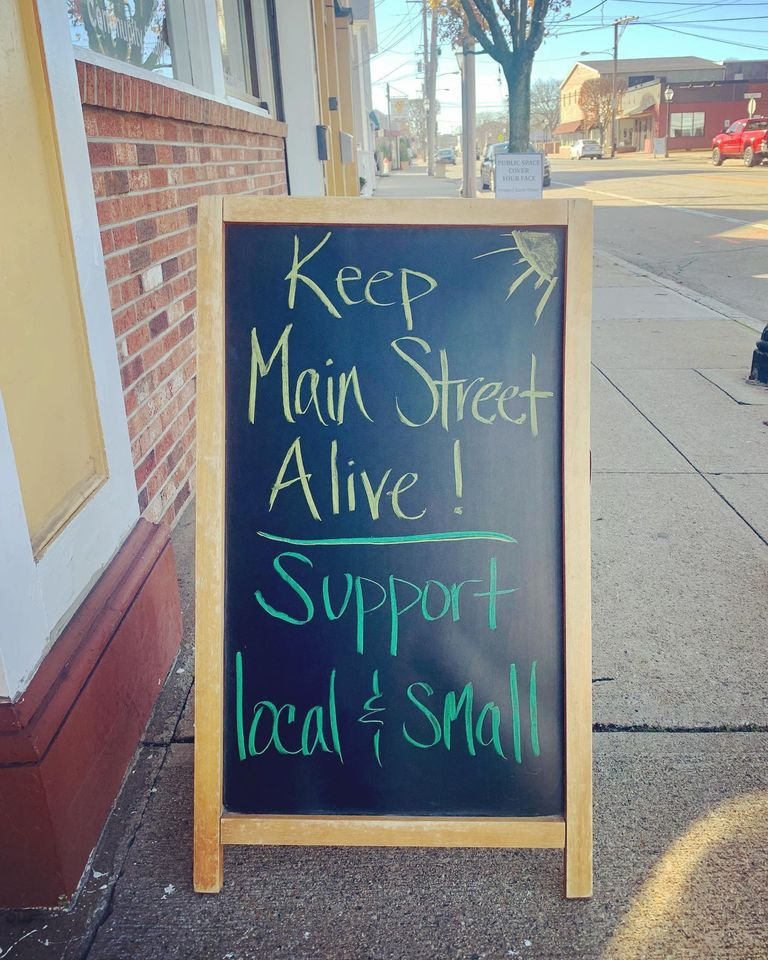 PUBLIC SPACE
COVER
YOUR FACE
Keep
Main Street
Alive!
Support
local & small